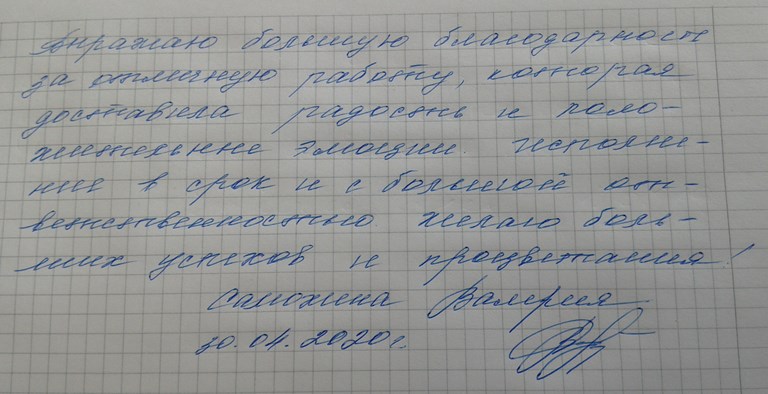 Выражаю большую благодарность
за отличную работу, которая
доставила радость и поло-
жительные эмоции. Исполне-
ние в срок и с большой от-
ветственностью. Желаю боль-
ших успехов и процветания!
Самохина Валерия
30.04.2020г.